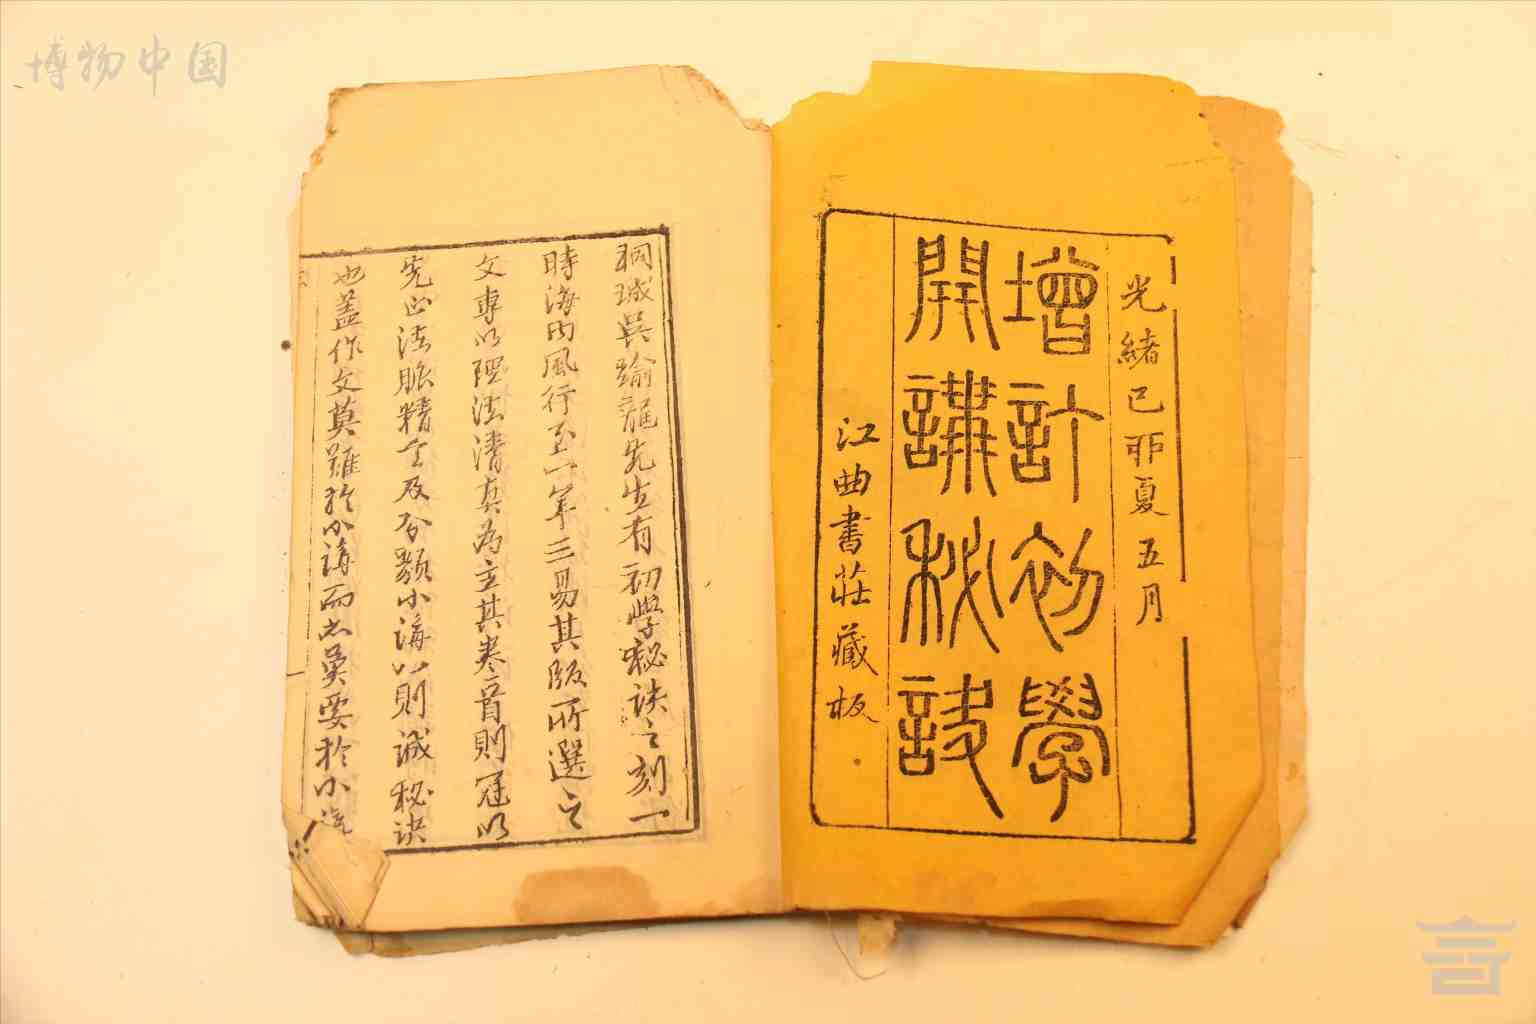 博物中国
光緒己卯夏五月
增計初學
開講秘訣
江曲書莊藏板
桐城吳瑜龍先生有初學秘訣之刻一
時海內風行至一年三易其版所選之
文專以理法清真為主其卷首則冠以
先正法脈精華及分類小講以則誠秘訣
也蓋作文莫難於小講而亦莫要於小講